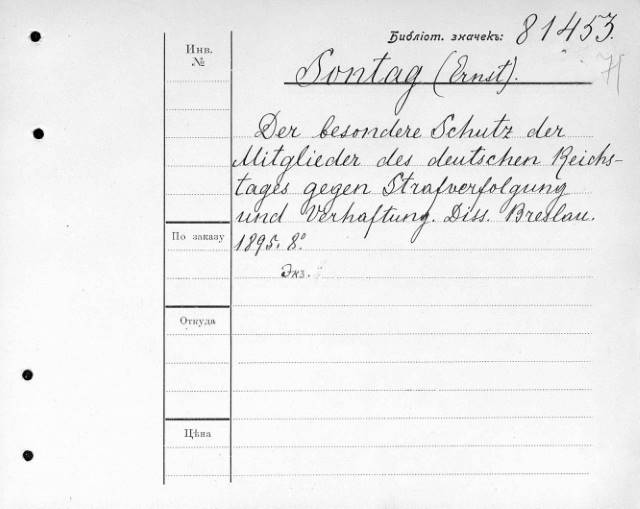 Библіот. значекъ: 81453.
Инв. №
Sontag (Ernst).
Der besondere Schutz der
Mitglieder des deutschen Reichs-
tages gegen Strafverfolgung
und Verhaftung. Diss. Breslau.
По заказу
1895. 8°.
Экз.
Откуда
Цѣна